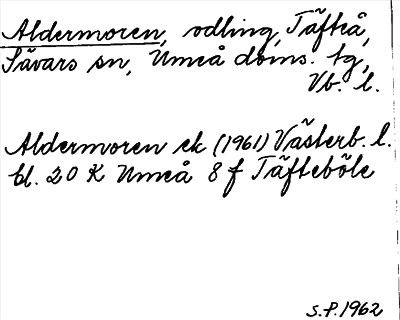 Aldermoren, odling, Täfteå,
Sävars sn, Umeå doms. tg,
Vb. l.
Aldermoren ek (1961) Västerb. l.
bl. 20 K Umeå 8 f Täfteböle
S.P. 1962